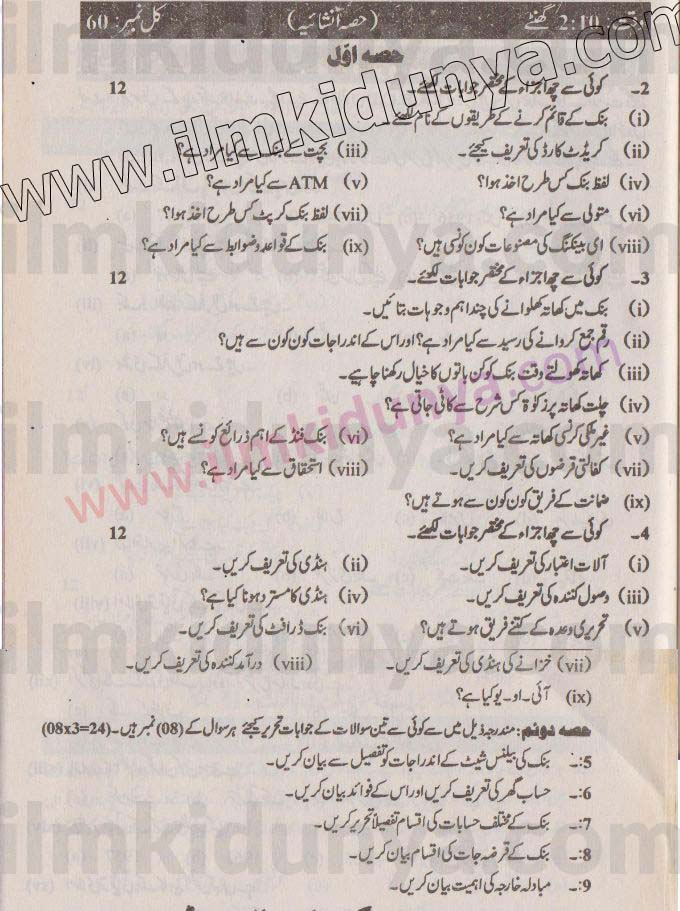 2:10 گھنٹے (حصہ انشائیہ) کل نمبر: 60
حصہ اوّل
2۔ کوئی سے چھ اجزاء کے مختصر جوابات لکھئے۔ 12
(i) بنک کے قائم کرنے کے طریقوں کے نام لکھئے۔
(ii) کریڈٹ کارڈ کی تعریف کیجئے۔ (iii) بچت کے بنک سے کیا مراد ہے؟
(iv) لفظ بنک کس طرح اخذ ہوا؟ (v) ATM سے کیا مراد ہے؟
(vi) متولی سے کیا مراد ہے؟ (vii) لفظ بنک کرپٹ کس طرح اخذ ہوا؟
(viii) ای بینکنگ کی مصنوعات کون کونسی ہیں؟ (ix) بنک کے قواعد و ضوابط سے کیا مراد ہے؟
3۔ کوئی سے چھ اجزاء کے مختصر جوابات لکھئے۔ 12
(i) بنک میں کھاتہ کھلوانے کی چند اہم وجوہات بتائیں۔
(ii) رقم جمع کروانے کی رسید سے کیا مراد ہے؟ اور اس کے اندراجات کون کون سے ہیں؟
(iii) کھاتہ کھولتے وقت بنک کو کن باتوں کا خیال رکھنا چاہیے۔
(iv) چلت کھاتہ پر زکوۃ کس شرح سے کاٹی جاتی ہے؟
(v) غیر ملکی کرنسی کھاتہ سے کیا مراد ہے؟ (vi) بنک فنڈ کے اہم ذرائع کونسے ہیں؟
(vii) کفالتی قرضوں کی تعریف کریں۔ (viii) استحقاق سے کیا مراد ہے؟
(ix) ضمانت کے فریق کون کون سے ہوتے ہیں؟
4۔ کوئی سے چھ اجزاء کے مختصر جوابات لکھئے۔ 12
(i) آلات اعتبار کی تعریف کریں۔ (ii) ہنڈی کی تعریف کریں۔
(iii) وصول کنندہ کی تعریف کریں۔ (iv) ہنڈی کا مسترد ہونا کیا ہے؟
(v) تحریری وعدہ کے کتنے فریق ہوتے ہیں؟ (vi) بنک ڈرافٹ کی تعریف کریں۔
(vii) خزانے کی ہنڈی کی تعریف کریں۔ (viii) درآمد کنندہ کی تعریف کریں۔
(ix) آئی۔او۔یو کیا ہے؟
حصہ دوئم: مندرجہ ذیل میں سے کوئی سے تین سوالات کے جوابات تحریر کیجئے ہر سوال کے (08) نمبر ہیں۔ (08x3=24)
5:۔ بنک کی بیلنس شیٹ کے اندراجات کو تفصیل سے بیان کریں۔
6:۔ حساب گھر کی تعریف کریں اور اس کے فوائد بیان کریں۔
7:۔ بنک کے مختلف حسابات کی اقسام تفصیلاً تحریر کریں۔
8:۔ بنک کے قرضہ جات کی اقسام بیان کریں۔
9:۔ مبادلہ خارجہ کی اہمیت بیان کریں۔
www.ilmkidunya.com
www.ilmkidunya.com
ilmkidunya.com
ilmkidunya.com
ilmkidunya.com
ilmkidunya.com
ilmkidunya.com